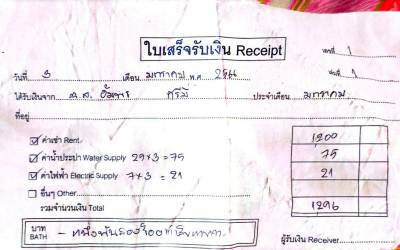 ใบเสร็จรับเงิน Receipt
เล่มที่ 1
วันที่ 3 เดือน มกราคม พ.ศ. เลขที่ 1
ได้รับเงินจาก ด.ส. ศรีมี ประจำเดือน มกราคม
ที่อยู่
☑ ค่าเช่า Rent 1200
☑ ค่าน้ำประปา Water Supply 25×3=75 75
☑ ค่าไฟฟ้า Electric Supply 7×3 = 21 21
☐ อื่นๆ Other
รวมจำนวนเงิน Total 1296
บาท
BATH
ผู้รับเงิน Receiver